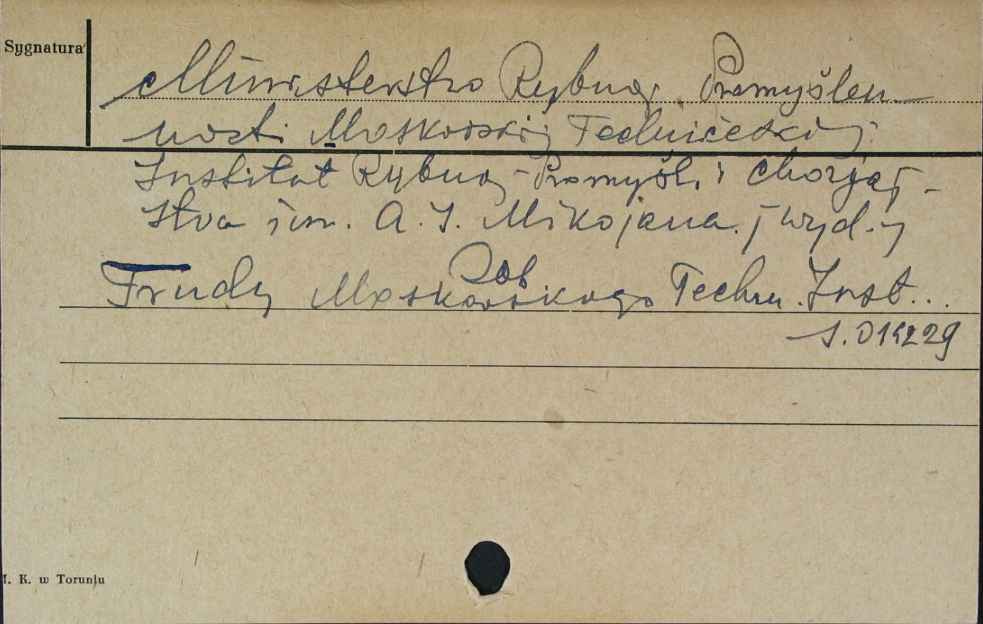 Sygnatura
Ministerstvo Rybnoj Promyšlen-
nosti Moskovskij Techničeskij
Institut Rybnoj Promyšl. i Chozjaj-
stva im. A. I. Mikojana. [wyd.]
Zob
Trudy Moskovskogo Techn. Inst...
S. 01229
U. K. w Toruniu